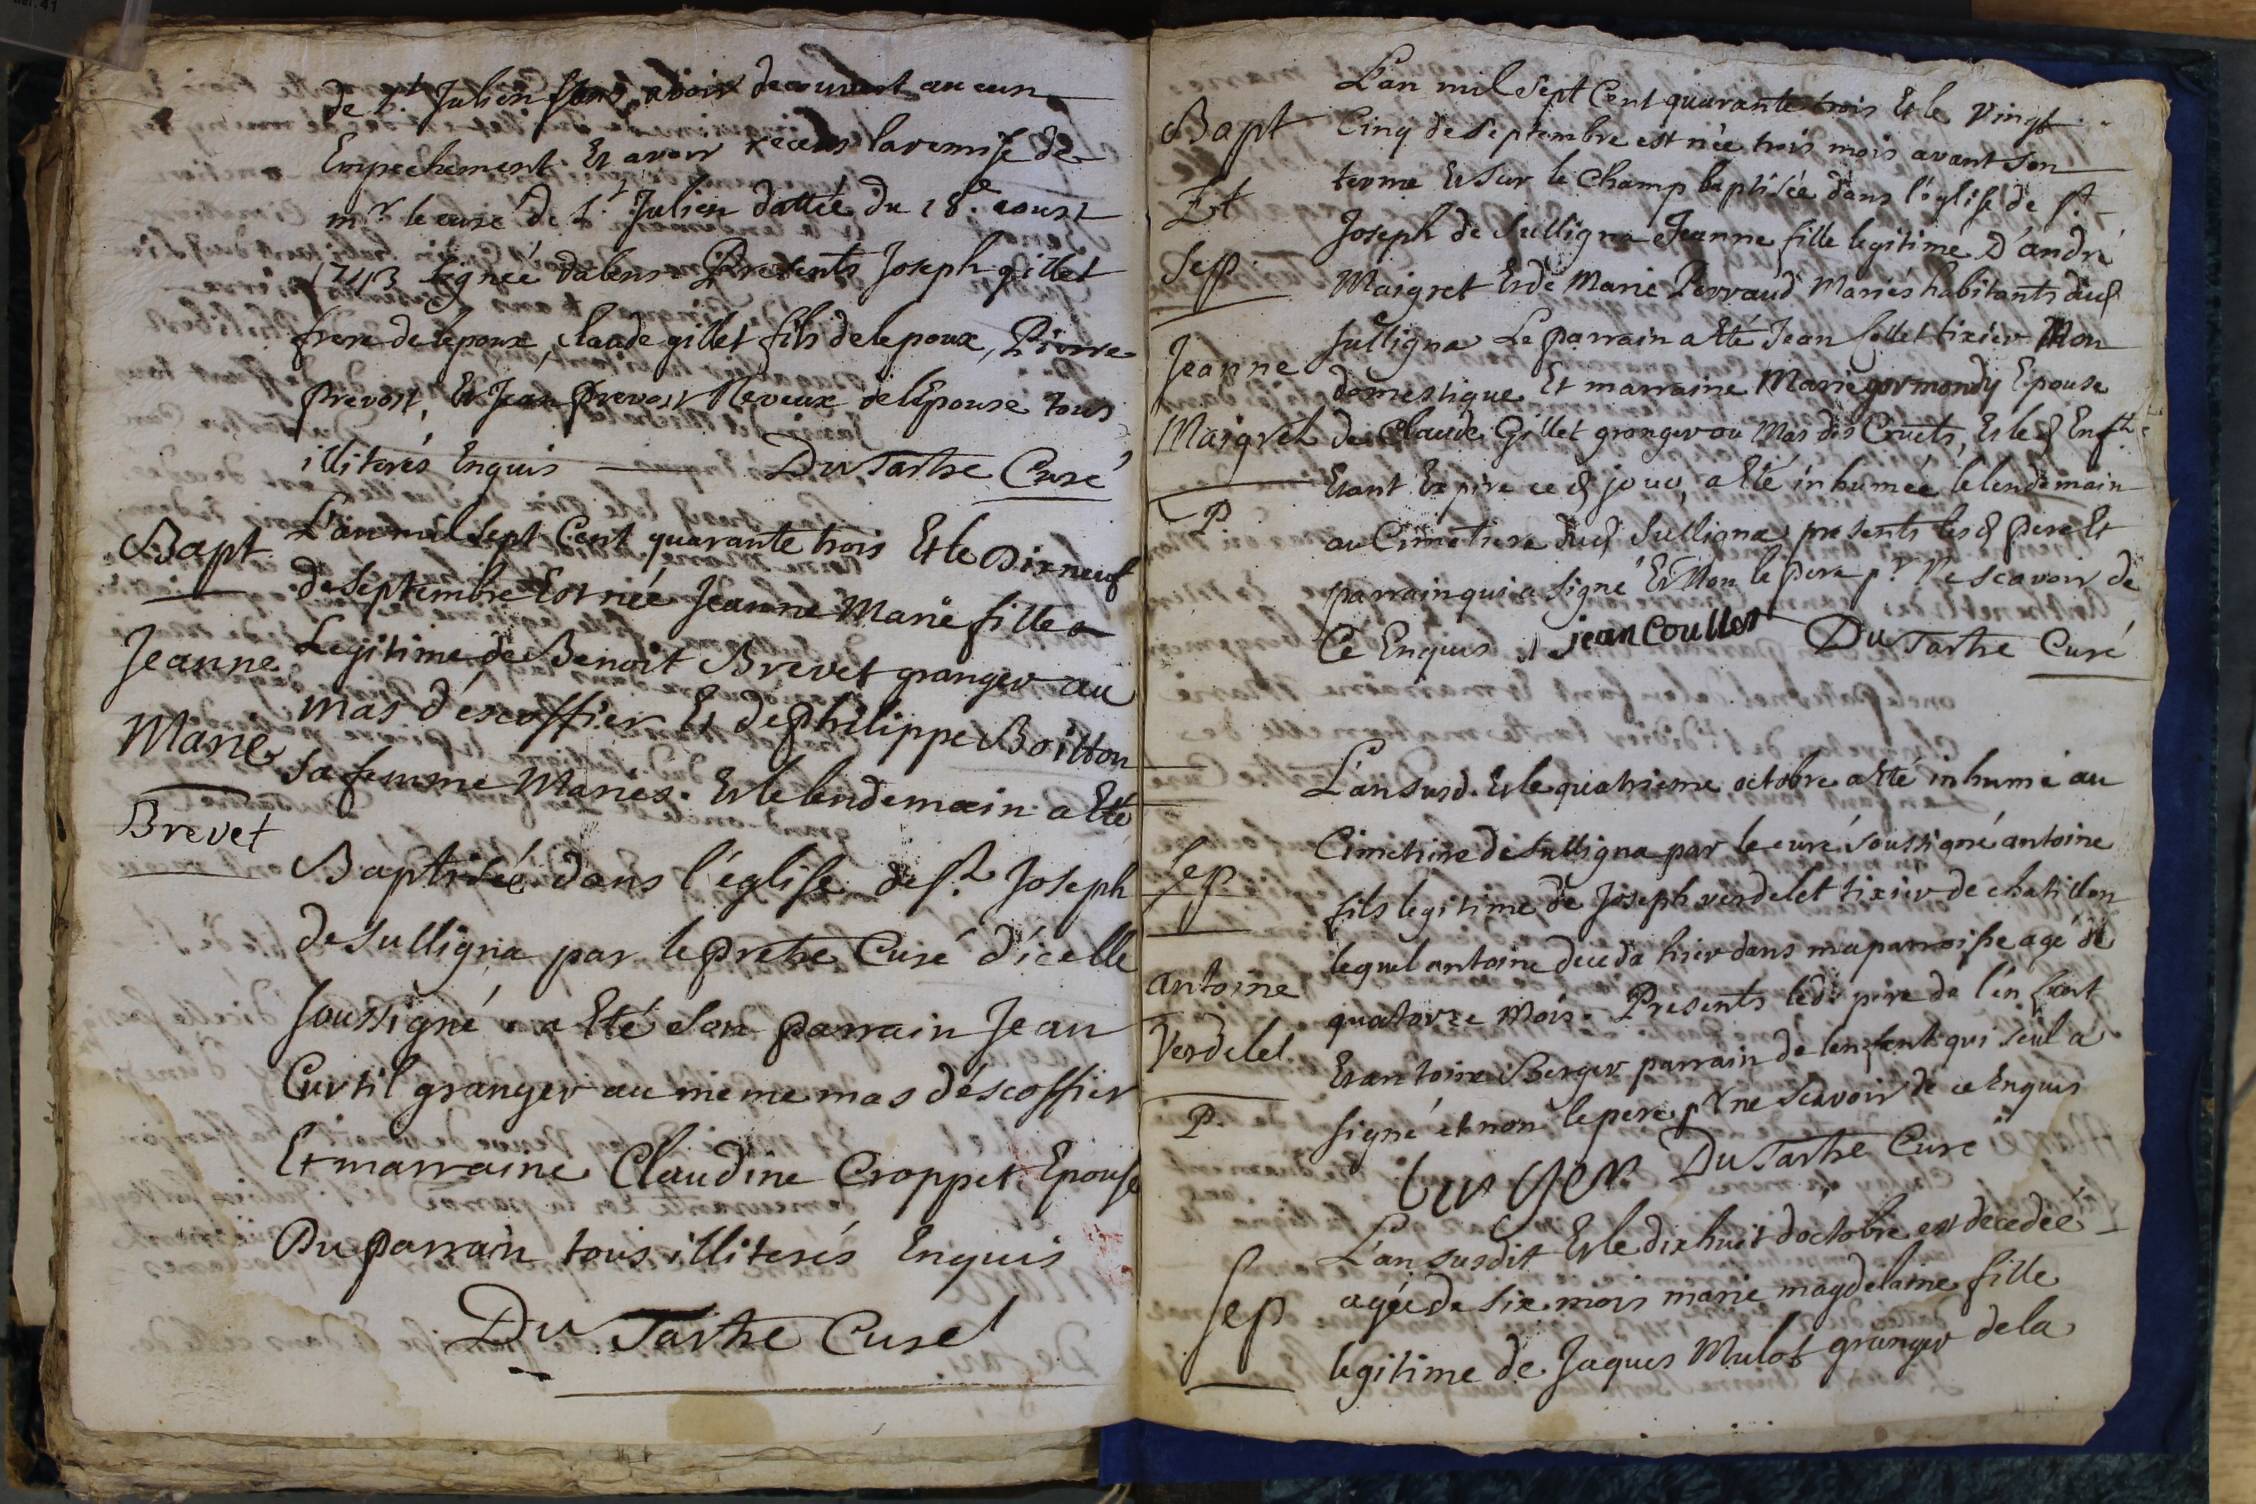 de St Julien sans avoir decouvert aucun
Empechement. Et avoir receus la remise de
mr le curé de St Julien dattée du 18e aoust
1743 signée dalens. Presents Joseph gillet
frere de lepoux, claude gillet fils de lepoux, Pierre
prevost, Et Jean prevost Neveux de lEpouse tous
illiterés Enquis Du Tartre Curé
Bapt.
Jeanne
Marie
Brevet
L'an mil sept Cent quarante trois Et le Dixneuf
de septembre Est née Jeanne Marie fille
Legitime de Benoit Brevet granger au
Mas d'escoffier Et de philippe Boitton
sa femme Mariés. Et le lendemain a Eté
Baptisée dans l'église de St Joseph
de sulligna par le pretre Curé d'icelle
soussigné. a Eté son parrain Jean
Curtil granger au meme mas d'escoffier
Et marraine Claudine Croppet Epouse
Du parrain tous illiterés Enquis
Du Tartre Curé
Bapt
Et
Sep.
Jeanne
Maigret
P.
L'an mil sept Cent quarante trois Et le vingt
Cinq de septembre est née trois mois avant son
terme Et sur le champ baptisée dans l'église de St
Joseph de Sulligna Jeanne fille legitime D'andré
Maigret Et de Marie Perraud Mariés habitants dud
sulligna Le parrain a Eté Jean tixier Mon
domestique Et marraine Marie gormondy Epouse
de Claude Gillet granger au Mas des Cruets, Et led Enft
Etant Expire ce d jour, a Eté inhumée le lendemain
au Cimetiere dud Sulligna presents les d pere Et
parrain qui a signé Et Non le pere pr Ne scavoir de
Ce Enquis jean Coullet Du Tartre Curé
Sep.
antoine
Verdelet
P.
L'an susd. Et le quatrieme octobre a Eté inhumé au
Cimetiere de sulligna par le curé soussigné antoine
fils legitime de Joseph verdelet tixier de chatillon
lequel antoine deceda hier dans ma parroisse agé de
quatorze Mois. Presents led. pere de l'enfant
Et antoine Berger parrain de l'enfant qui seul a
signé et non le pere pr ne scavoir de ce Enquis
Du Tartre Curé
Sep
L'an susdit Et le dixhuit d'octobre est decedée
agée de six mois marie magdelaine fille
legitime de Jaques Mulot granger de la